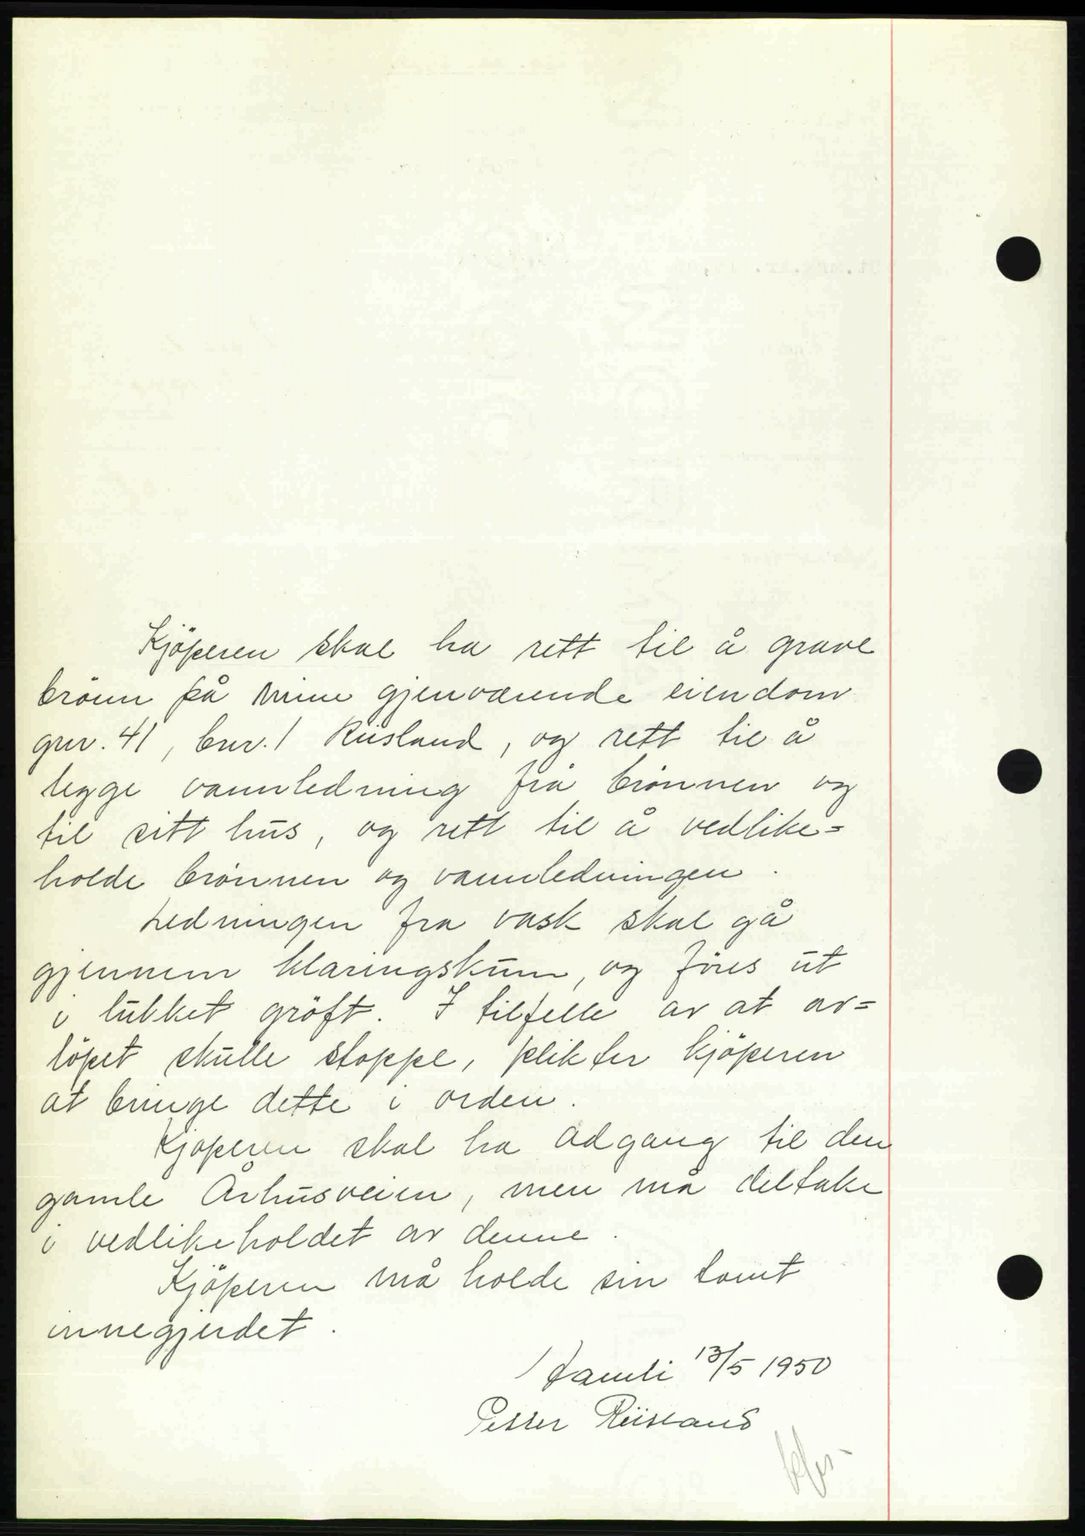 Kjöperen skal ha rett til å grave
brönn på min gjenværende eiendom
gnr. 41, bnr. 1 Riisland, og rett til å
legge vannledning frå brönnen og
til sitt hus, og rett til å vedlike=
holde brönnen og vannledningen.
Ledningen fra vask skal gå
gjennem klaringskum, og föres ut
i lukket gröft. I tilfelle av at av=
löpet skulle stoppe, plikter kjöperen
at bringe dette i orden.
Kjöperen skal ha adgang til den
gamle Århusveien, men må deltake
i vedlikeholdet av denne.
Kjöperen må holde sin tomt
innegjerdet.
Åamli 13/5 1950
Petter Riisland